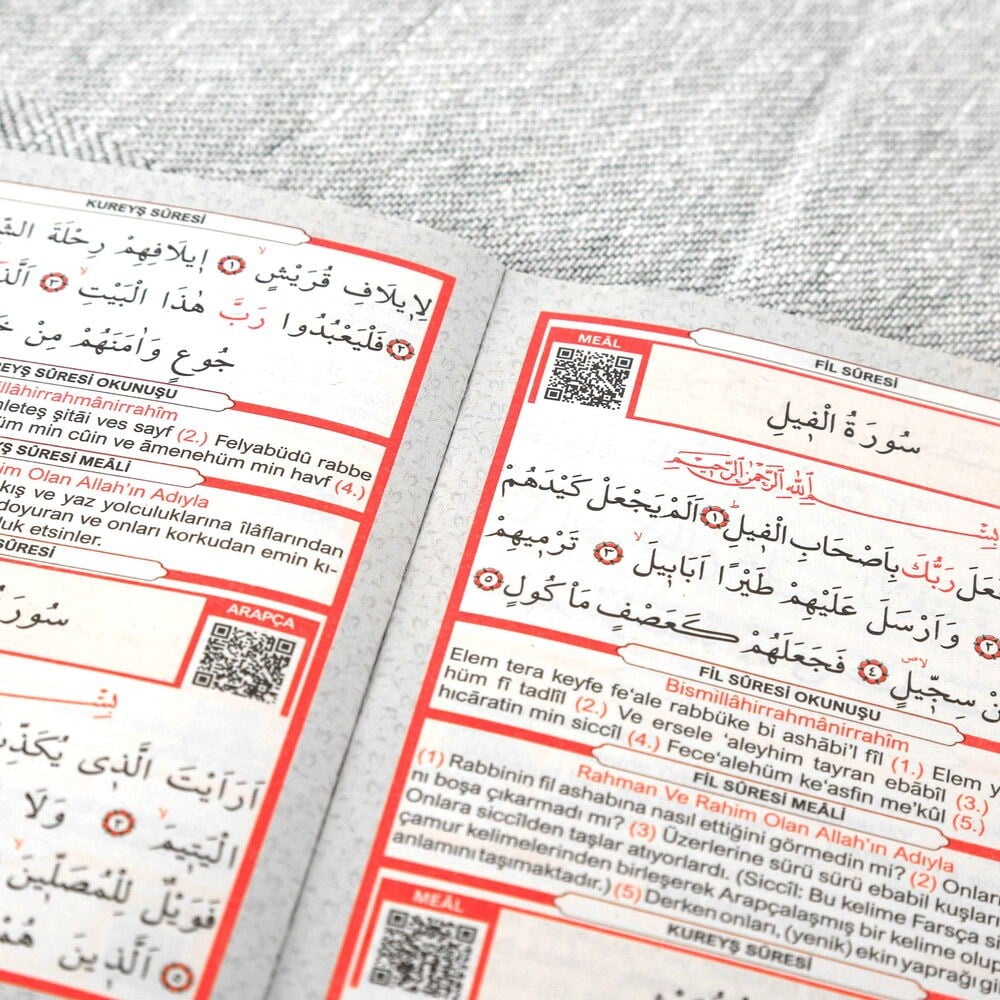 KUREYŞ SÛRESİ
لِا۪يلَافِ قُرَيْشٍ ﴿١﴾ ا۪يلَافِهِمْ رِحْلَةَ
﴿٢﴾ فَلْيَعْبُدُوا رَبَّ هٰذَا الْبَيْتِ ﴿٣﴾
جُوعٍ وَاٰمَنَهُمْ مِنْ
SÛRESİ OKUNUŞU
şitâi ves sayf (2.) Felyabüdû rabbe
min cûin ve âmenehüm min havf (4.)
SÛRESİ MEÂLİ
Olan Allah'ın Adıyla
kış ve yaz yolculuklarına îlâflarından
doyuran ve onları korkudan emin kı-
etsinler.
SÛRESİ
ARAPÇA
اَرَاَيْتَ الَّذ۪ى
الْيَت۪يمَ ﴿٢﴾ وَلَا
فَوَيْلٌ لِلْمُصَلّ۪ينَ
﴿٥﴾ اَلَّذ۪ينَ هُمْ
MEÂL
FİL SÛRESİ
سُورَةُ الْف۪يلِ
بِسْمِ اللّٰهِ الرَّحْمٰنِ الرَّح۪يمِ
رَبُّكَ بِاَصْحَابِ الْف۪يلِ ﴿١﴾ اَلَمْ يَجْعَلْ كَيْدَهُمْ
﴿٢﴾ وَاَرْسَلَ عَلَيْهِمْ طَيْرًا اَبَاب۪يلَ ﴿٣﴾ تَرْم۪يهِمْ
سِجّ۪يلٍ ﴿٤﴾ فَجَعَلَهُمْ كَعَصْفٍ مَاْكُولٍ ﴿٥﴾
FİL SÛRESİ OKUNUŞU
Bismillâhirrahmânirrahîm
Elem tera keyfe fe'ale rabbüke bi ashâbi'l fîl (1.) Elem
hüm fî tadlîl (2.) Ve ersele 'aleyhim tayran ebâbîl (3.)
hıcâratin min siccîl (4.) Fece'alehüm ke'asfin me'kûl (5.)
FİL SÛRESİ MEÂLİ
Rahman Ve Rahim Olan Allah'ın Adıyla
(1) Rabbinin fil ashabına nasıl ettiğini görmedin mi? (2)
nı boşa çıkarmadı mı? (3) Üzerlerine sürü sürü ebabil kuşları
Onlara siccîlden taşlar atıyorlardı. (Siccîl: Bu kelime Farsça
çamur kelimelerinden birleşerek Arapçalaşmış bir kelime olup
anlamını taşımaktadır.) (5) Derken onları, (yenik) ekin yaprağı
MEÂL
KUREYŞ SÛRESİ